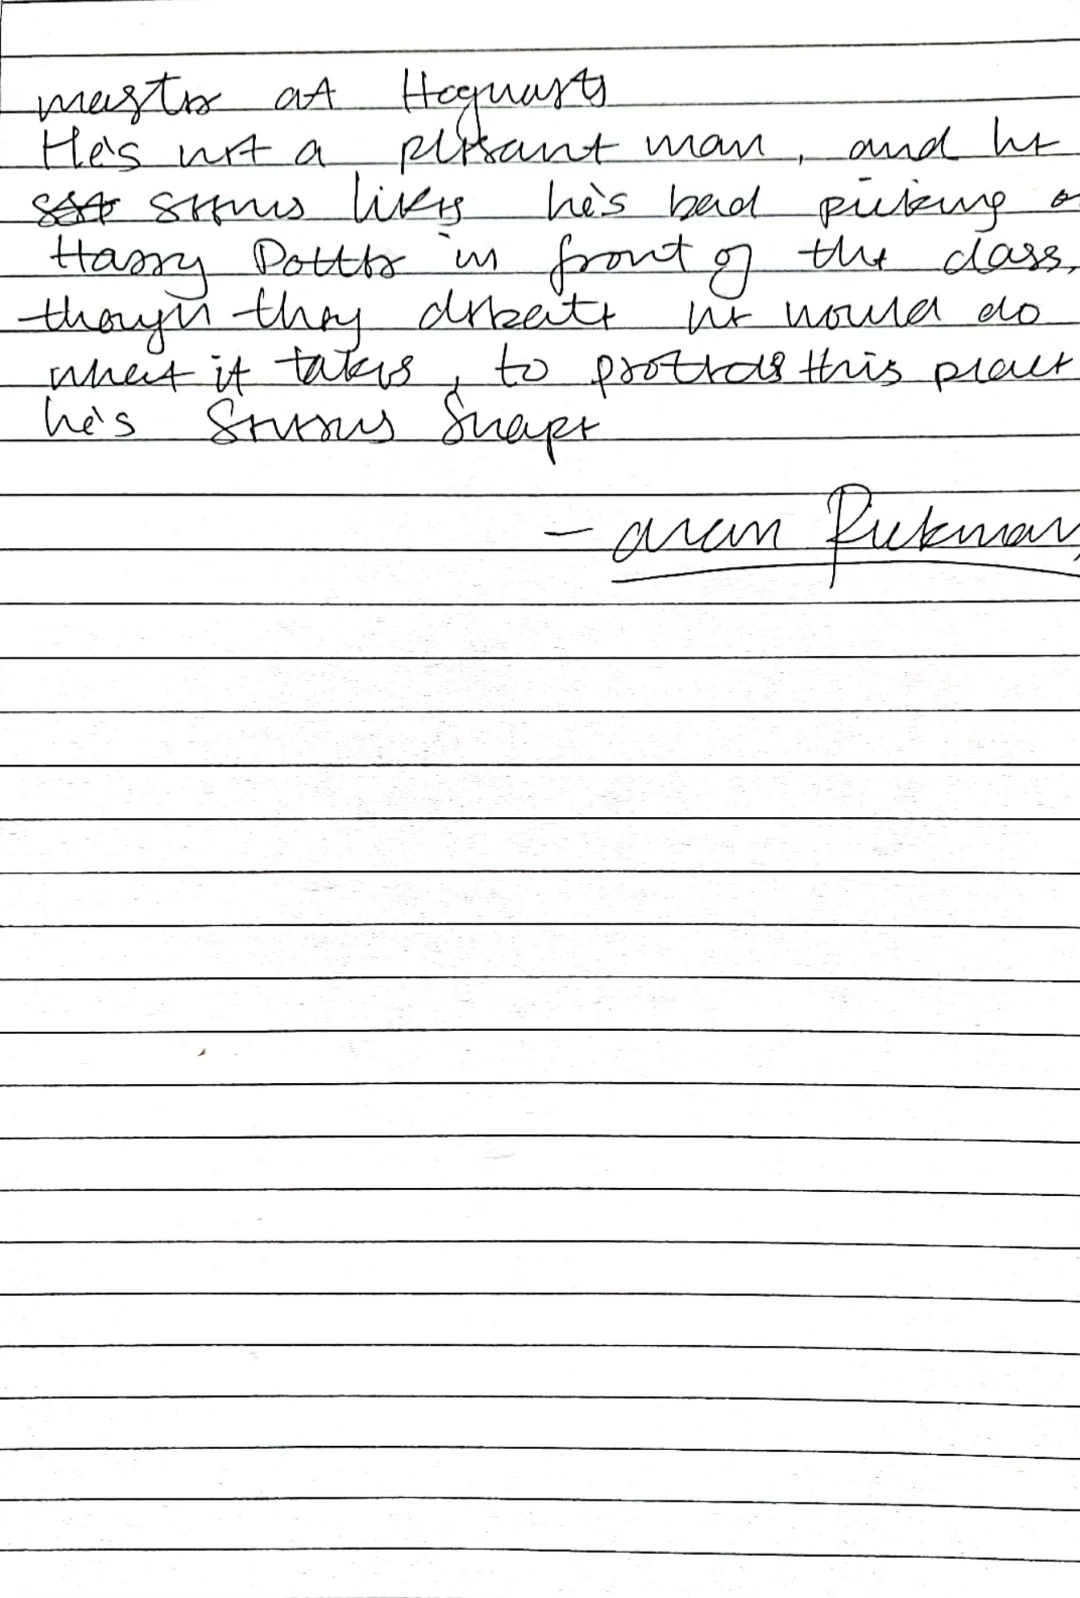 master at Hogwarts
He's not a plesant man, and he
seems likes he's bad picking o
Harry Potter in front of the class,
though they debate he would do
what it takes, to protect this place
he's Severus Snape
- Alan Rickman